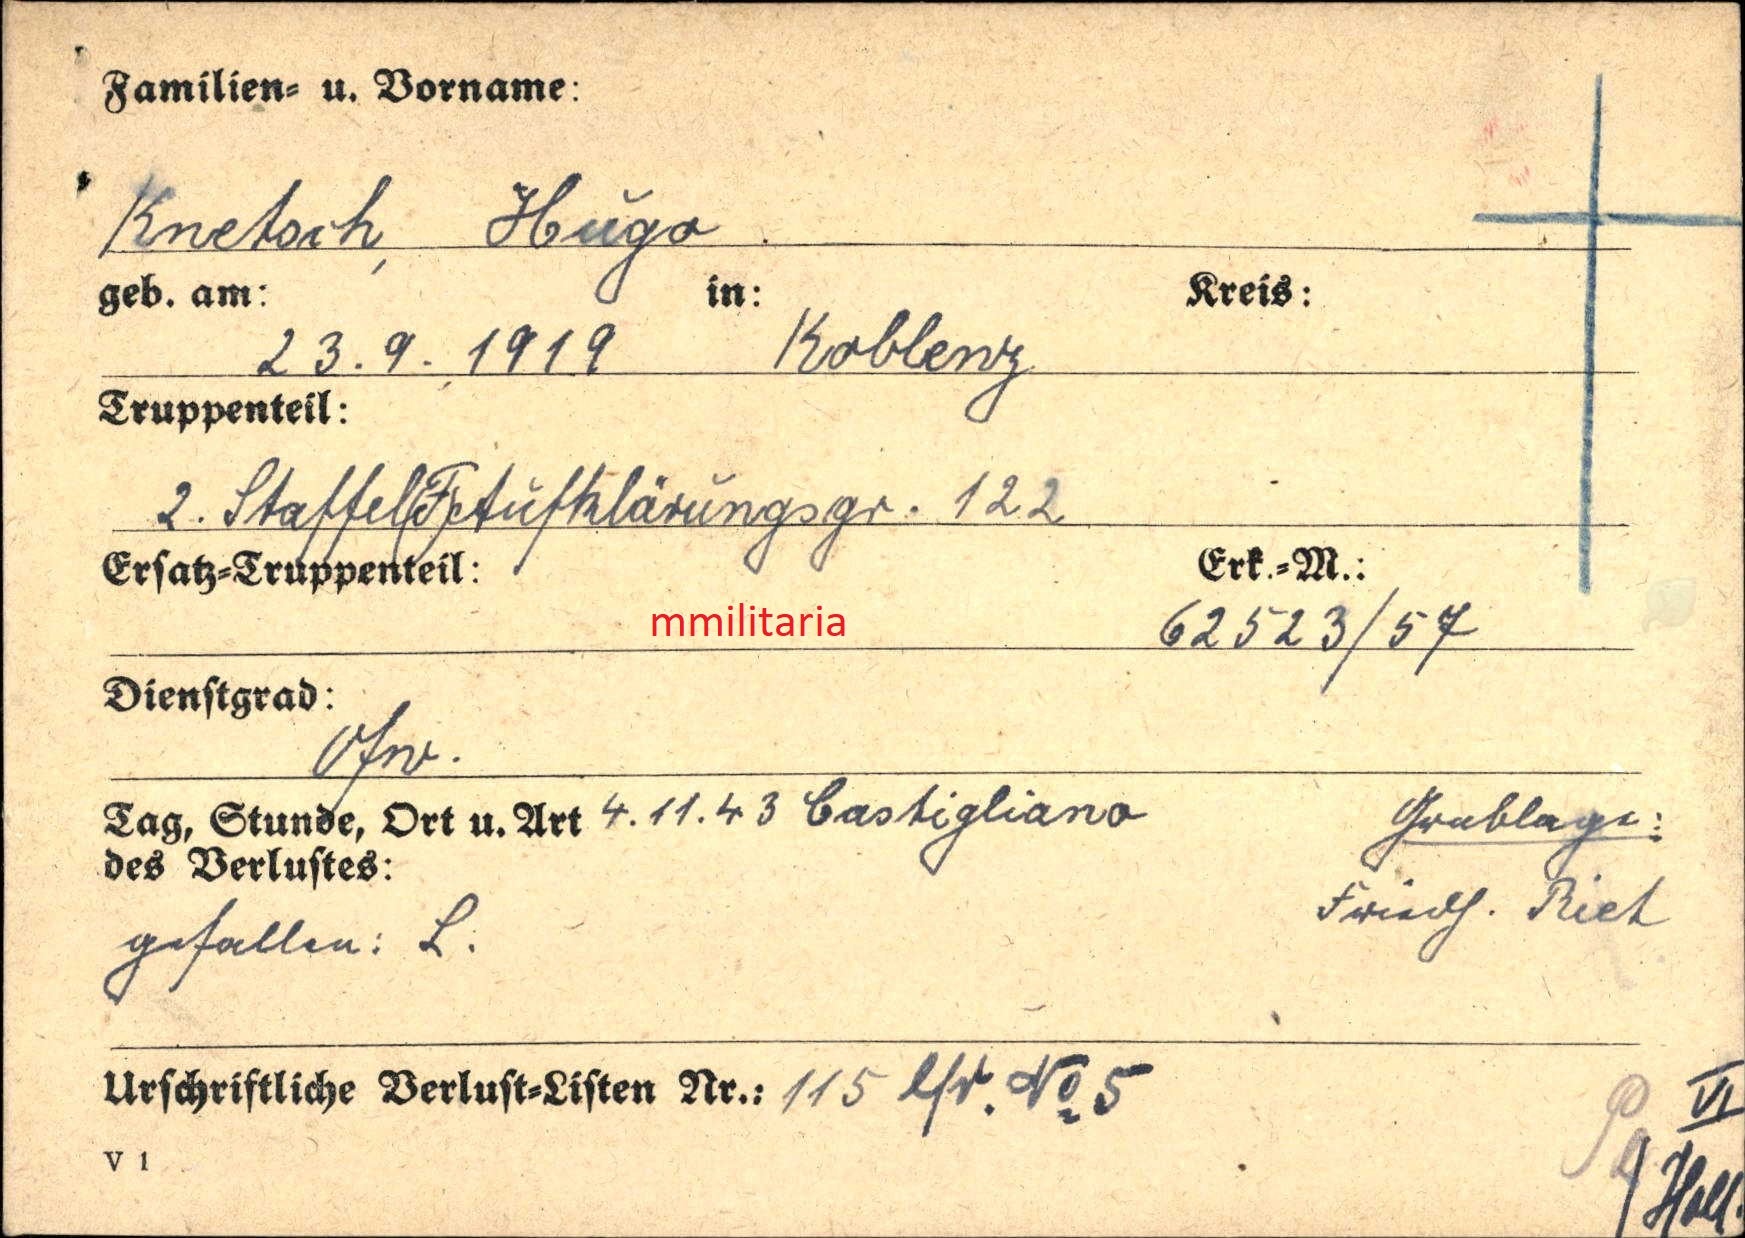 Familien- u. Vorname:
Knetsch, Hugo.
geb. am: in: Kreis:
23.9.1919 Koblenz
Truppenteil:
2. Staffel (F) Aufklärungsgr. 122
Ersatz-Truppenteil: Erk.-M.:
mmilitaria
62523/57
Dienstgrad:
Ofw.
Tag, Stunde, Ort u. Art 4.11.43 Castigliano
des Verlustes:
Grablage:
gefallen: L.
Friedh. Riet
Urschriftliche Verlust-Listen Nr.: 115 lfd. No 5
VI
V 1